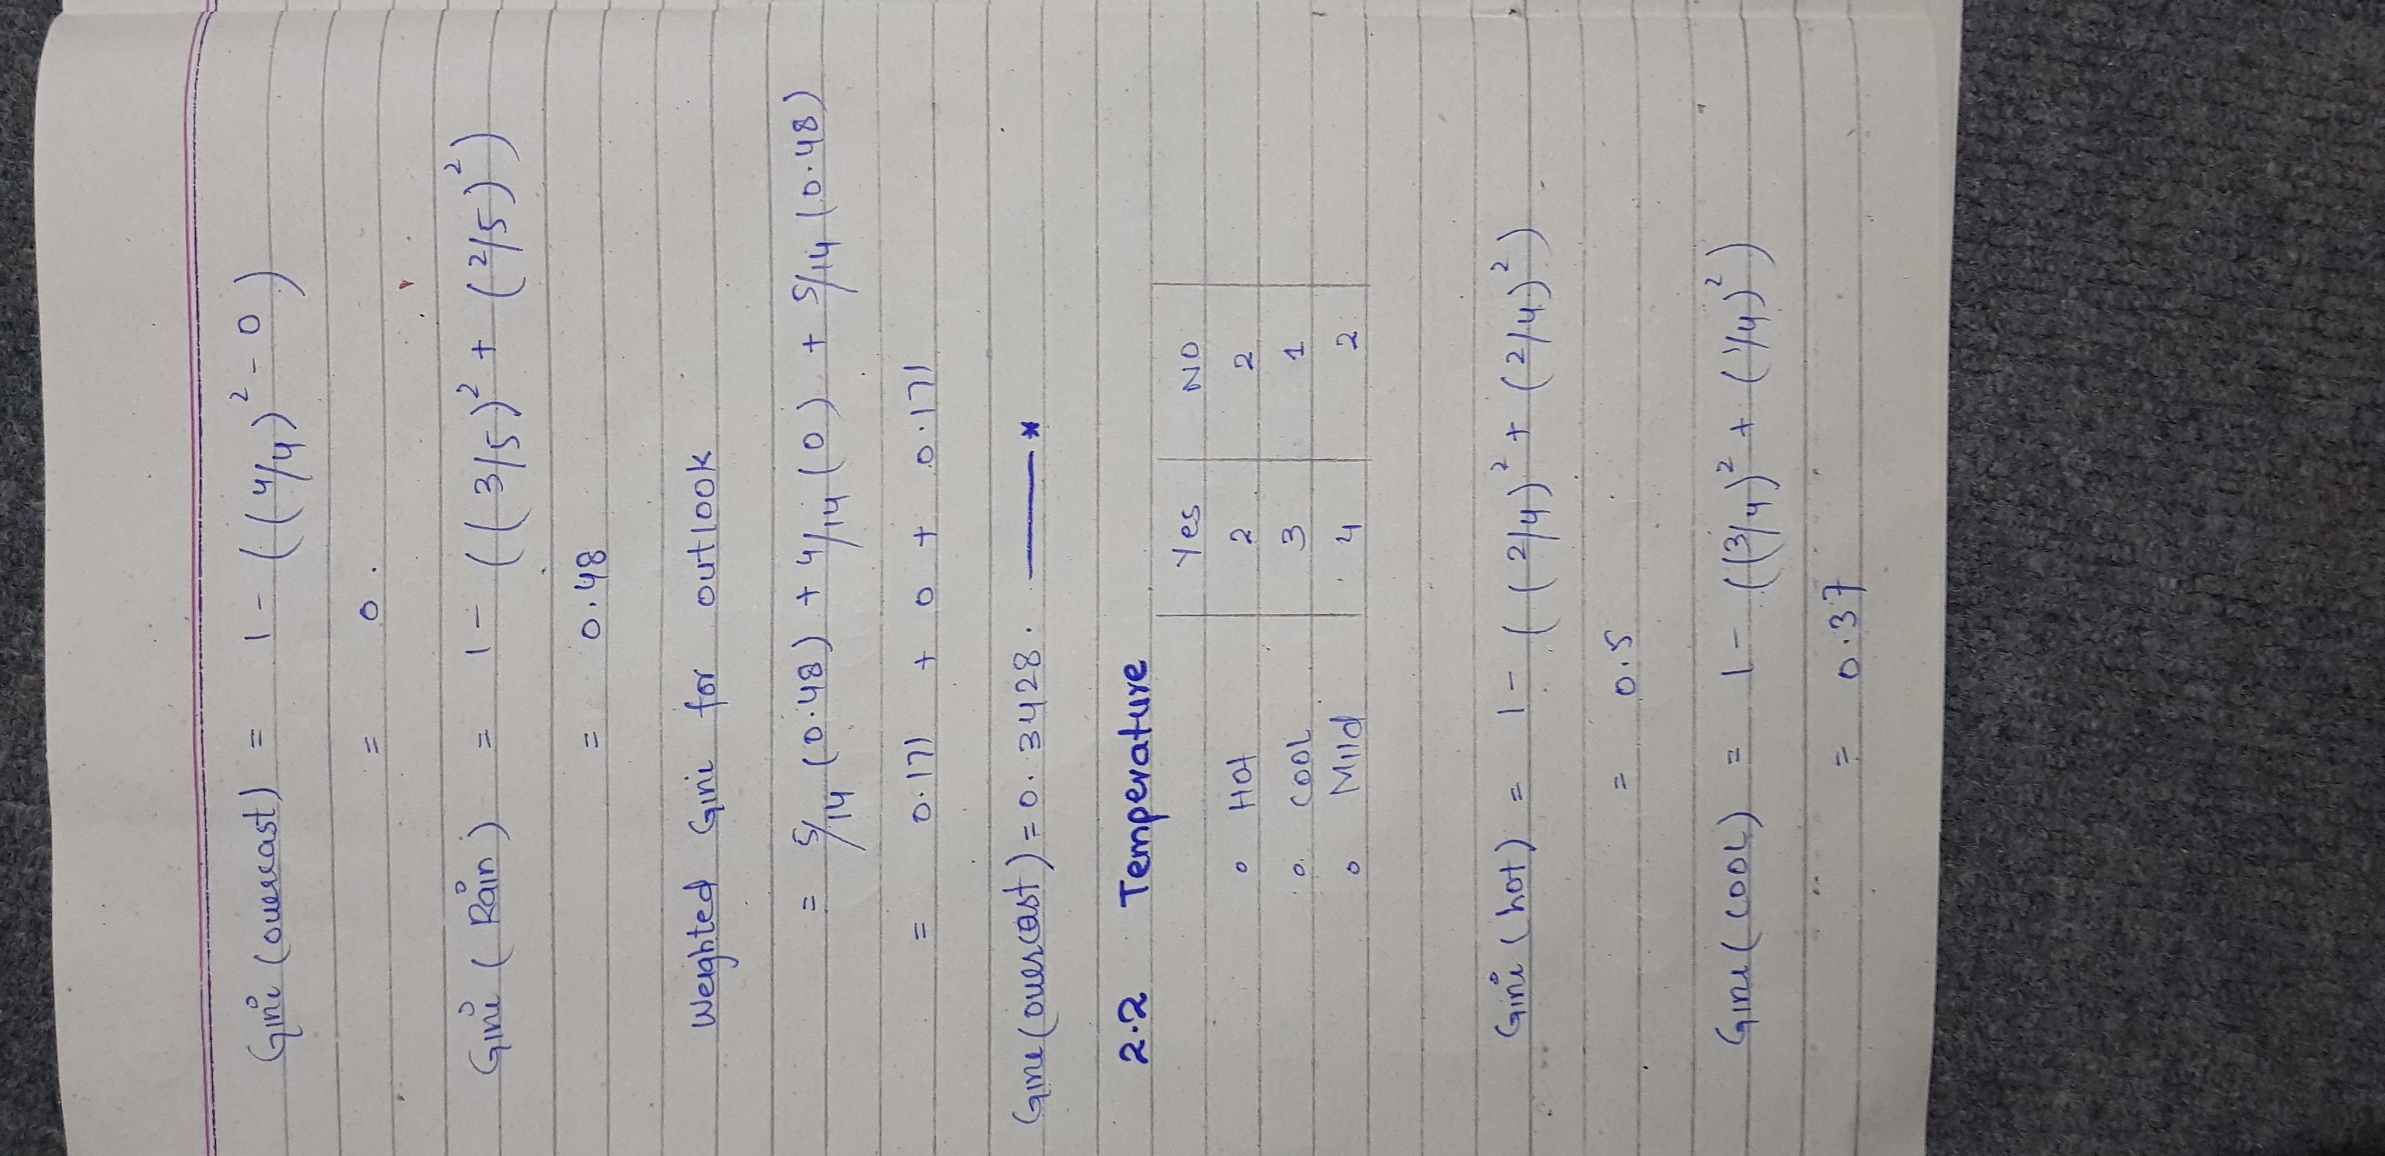 Gini (overcast) = 1 - ((4/4)² - 0)
= 0.
Gini (Rain) = 1 - ((3/5)² + (2/5)²)
= 0.48
Weighted Gini for outlook
= 5/14 (0.48) + 4/14 (0) + 5/14 (0.48)
= 0.171 + 0 + 0.171
Gini (overcast) = 0.3428. ——*
2.2 Temperature
Yes NO
○ Hot 2 2
○ COOL 3 1
○ Mild 4 2
Gini (hot) = 1 - ((2/4)² + (2/4)²)
= 0.5
Gini (COOL) = 1 - ((3/4)² + (1/4)²)
= 0.37